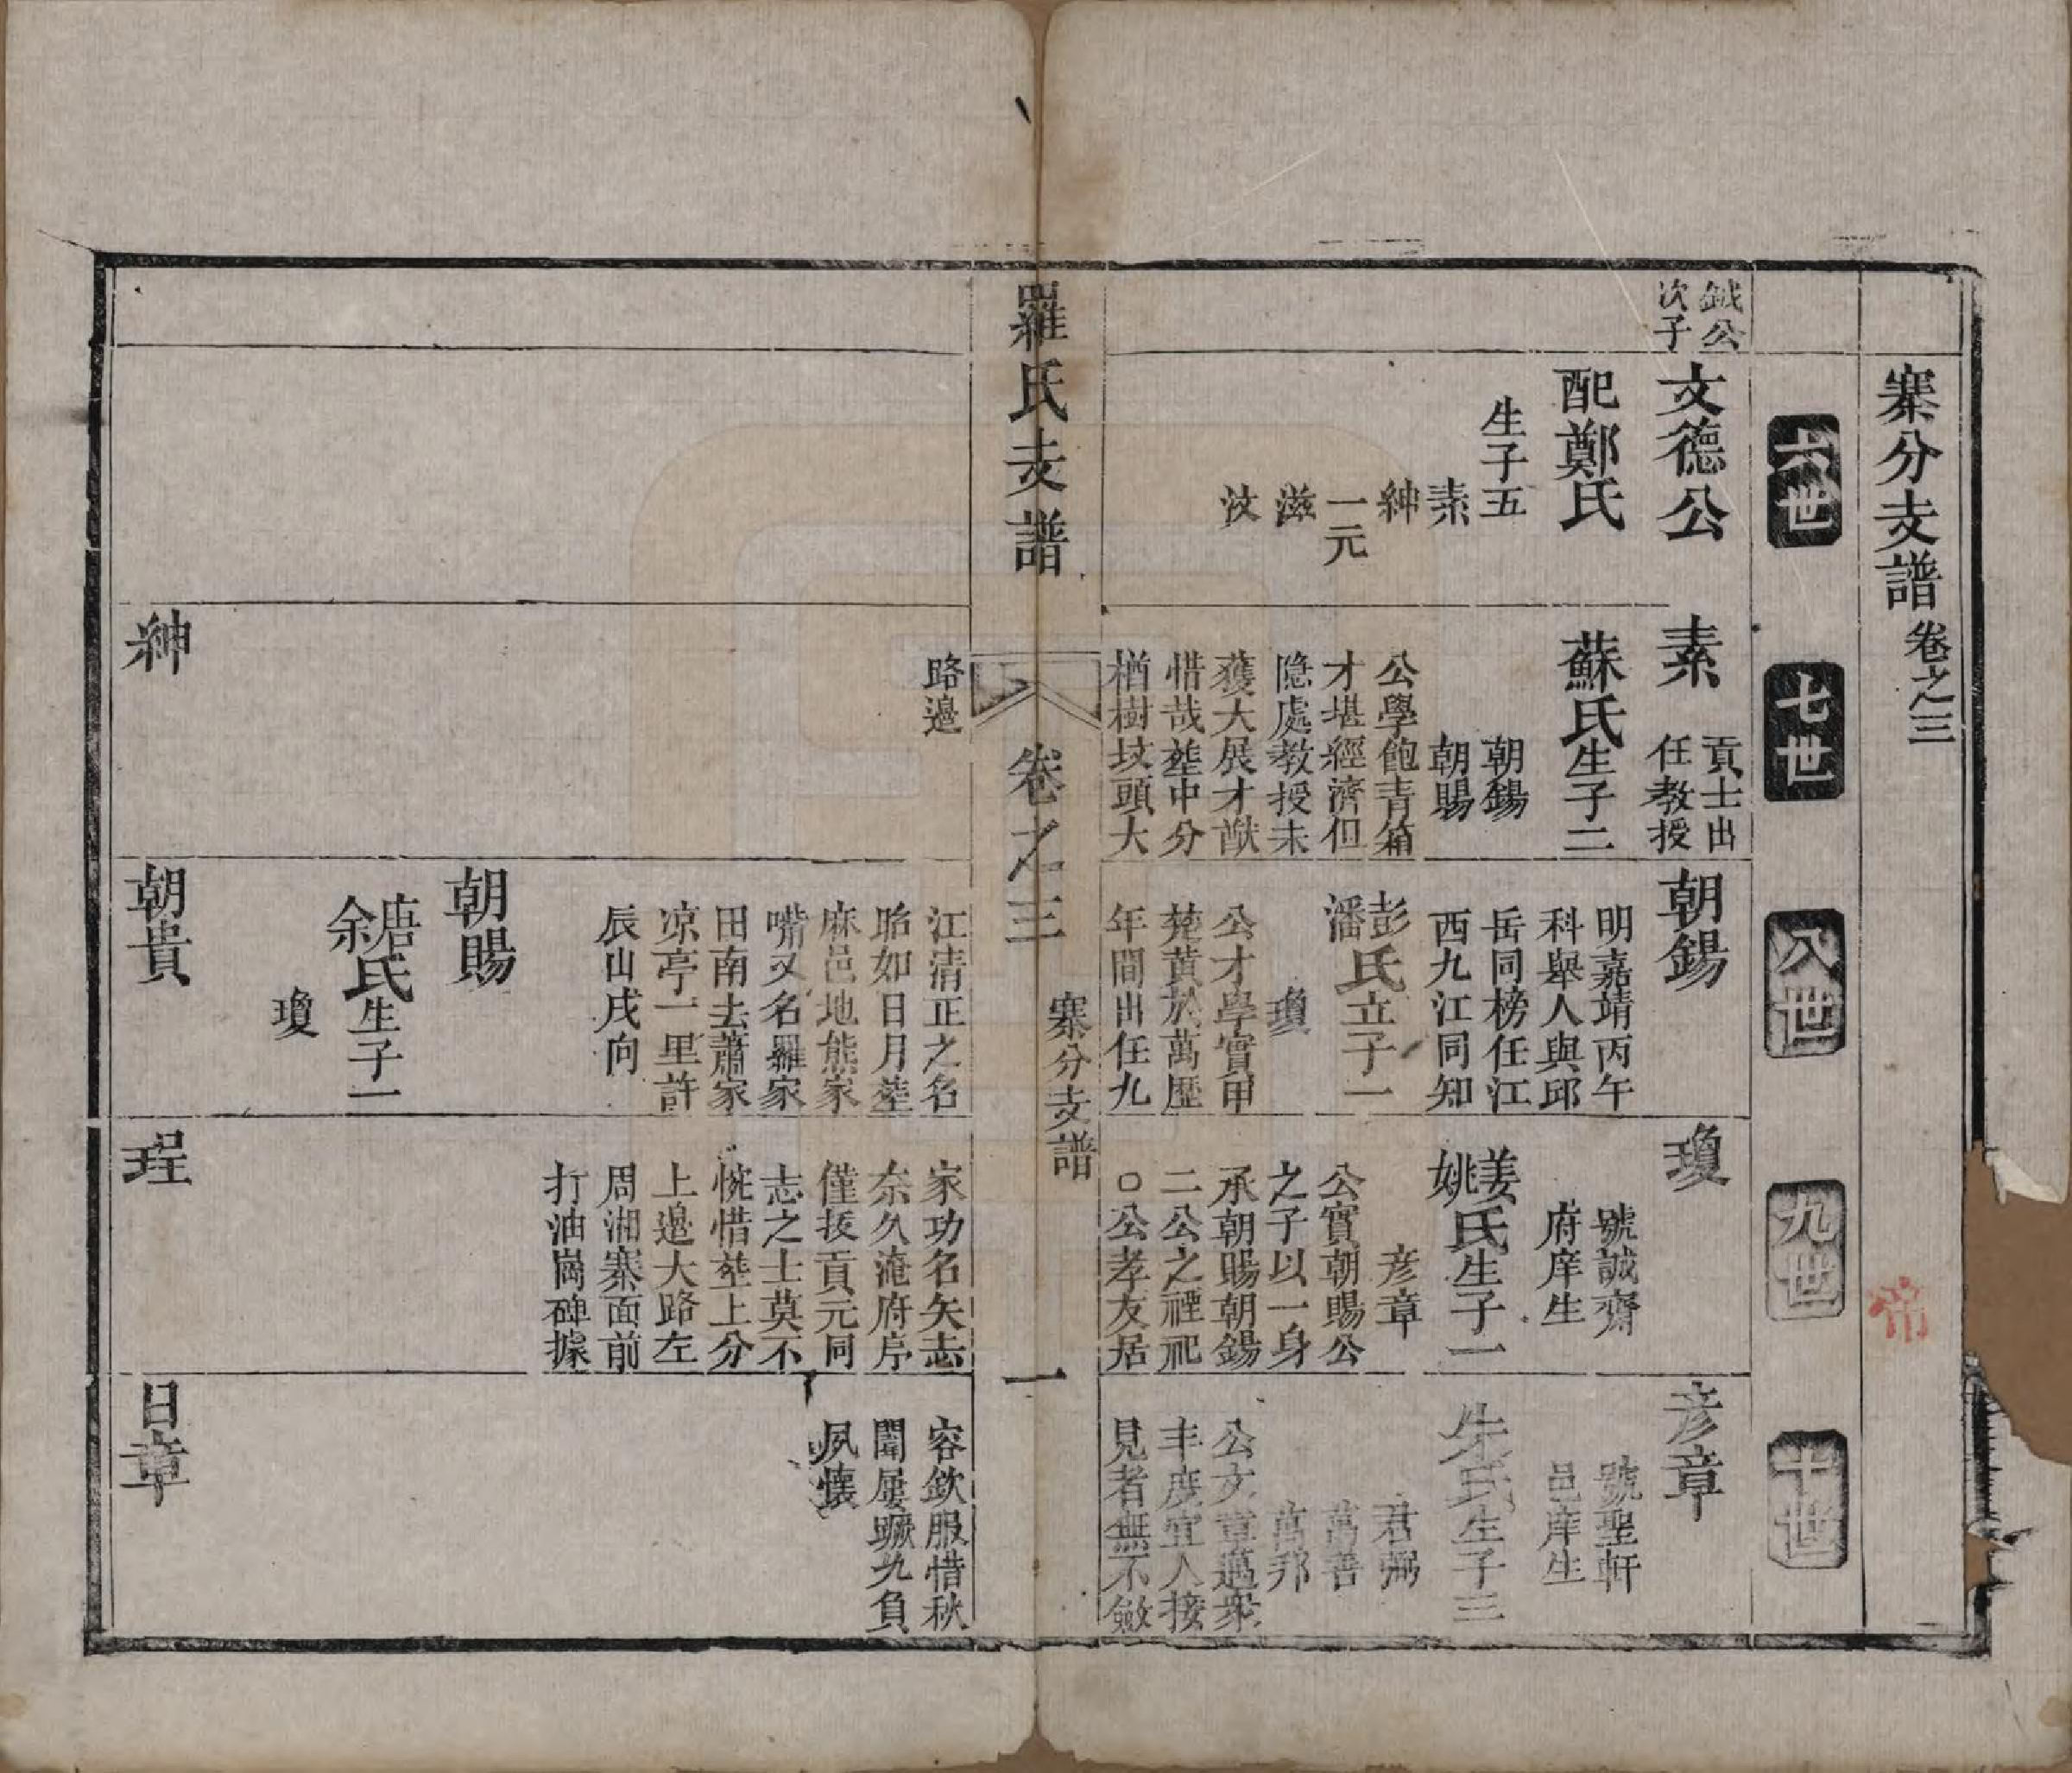 寨分支譜 卷之三
六世
七世
八世
九世
十世
鉞公
次子
文德公
配鄭氏
生子五
素
紳
一元
滋
汶
素 貢士出
任教授
蘇氏生子二
朝鍚
朝賜
公學飽青箱
才堪經濟但
隐處教授未
獲大展才猷
惜哉塟中分
楢樹坟頭大
路邉
朝鍚
明嘉靖丙午
科舉人與邱
岳同榜任江
西九江同知
彭
潘氏立子一
瓊
公才學實甲
楚黄於萬歷
年間出任九
江清正之名
昭如日月塟
麻邑地熊家
嘴又名羅家
田南去蕭家
凉亭一里許
辰山戌向
瓊
號誠齋
府庠生
姜
姚氏生子一
彦章
公實朝賜公
之子以一身
承朝賜朝鍚
二公之禋祀
○公孝友居
家功名矢志
奈久淹府庠
僅拔貢元同
志之士莫不
惋惜塟上分
上邉大路左
周湘寨面前
打油崗碑據
彦章
號聖軒
邑庠生
朱氏生子三
君弼
萬善
萬邦
公文章邁衆
丰度宜人接
見者無不斂
容欽服惜秋
闈屢蹶九負
夙懷
羅氏支譜
卷之三
寨分支譜
一
朝賜
唐
余氏生子一
瓊
紳
朝貴
珵
日章